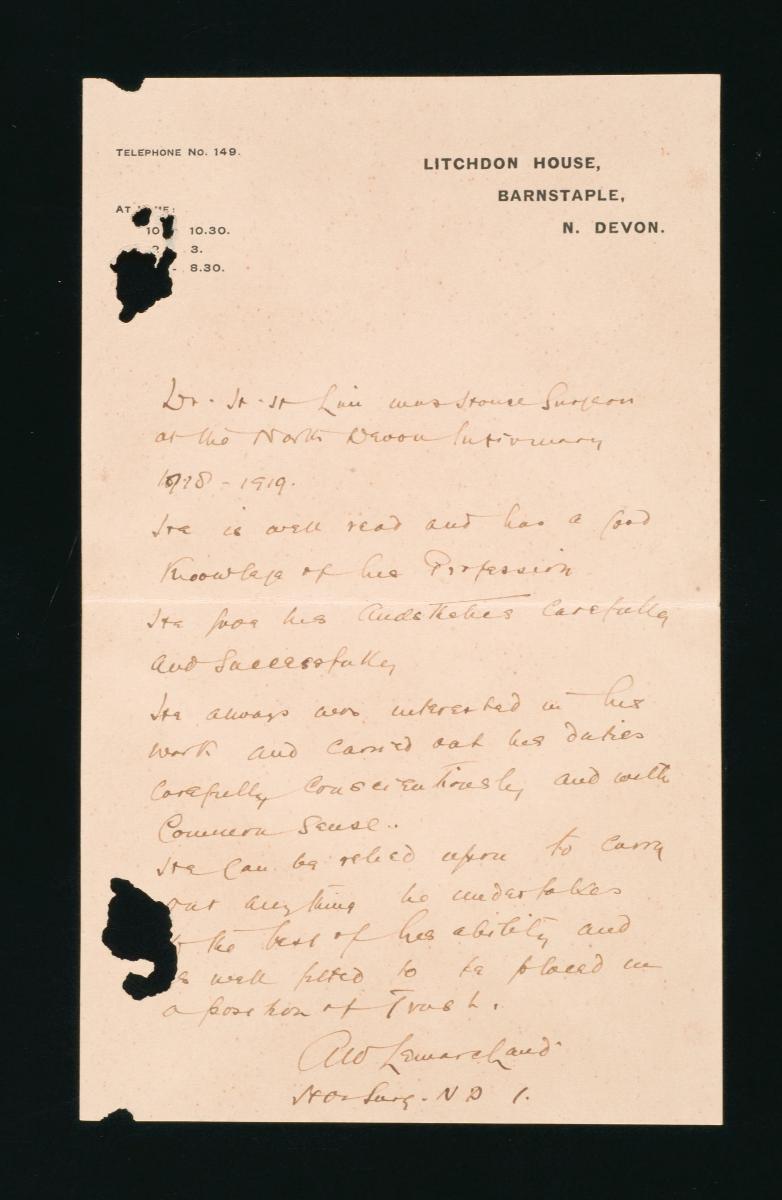 TELEPHONE NO. 149.
LITCHDON HOUSE,
BARNSTAPLE,
N. DEVON.
AT
10 10.30.
2 3.
- 8.30.
Dr. H. H. was House Surgeon
at the North Devon Infirmary
1918 - 1919.
He is well read and has a good
Knowledge of his Profession
He gave his Anaesthetics Carefully
and Successfully
He always was interested in his
work and carried out his duties
Carefully Conscientiously and with
Common Sense..
He can be relied upon to carry
out anything he undertakes
the best of his ability and
is well fitted to be placed in
a position of Trust.
AW Lemarchand
Hon Surg. N D I.